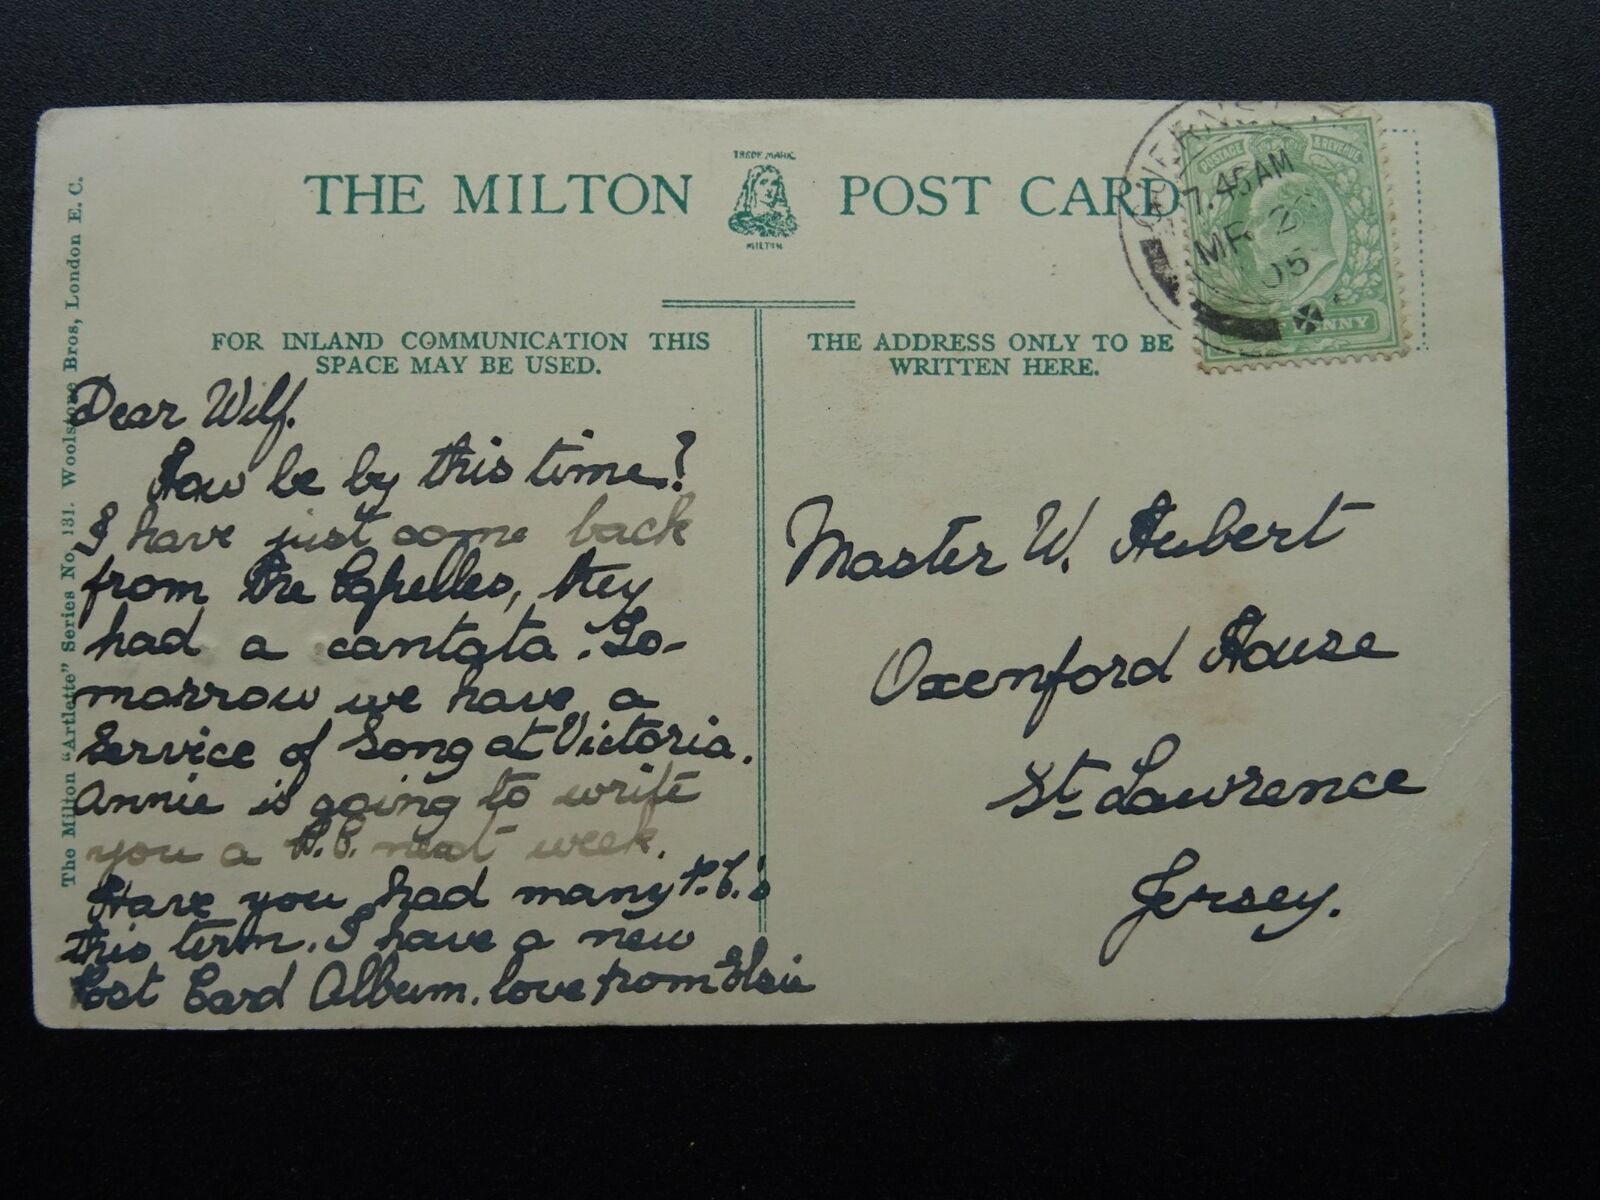 THE MILTON POST CARD
TRADE MARK
MILTON
GUERNSEY
7.45AM
MR 2
05
POSTAGE & REVENUE
PENNY
FOR INLAND COMMUNICATION THIS
SPACE MAY BE USED.
THE ADDRESS ONLY TO BE
WRITTEN HERE.
The Milton "Artlette" Series No. 131. Woolstone Bros, London E. C.
Dear Wilf.
How be by this time?
I have just come back
from the Capelles, they
had a cantata. To-
morrow we have a
Service of Song at Victoria.
Annie is going to write
you a P.C. next week.
Have you had many P.C.'s
this term. I have a new
Post Card Album. love from Elsie
Master W. Hubert
Oxenford House
St Lawrence
Jersey.